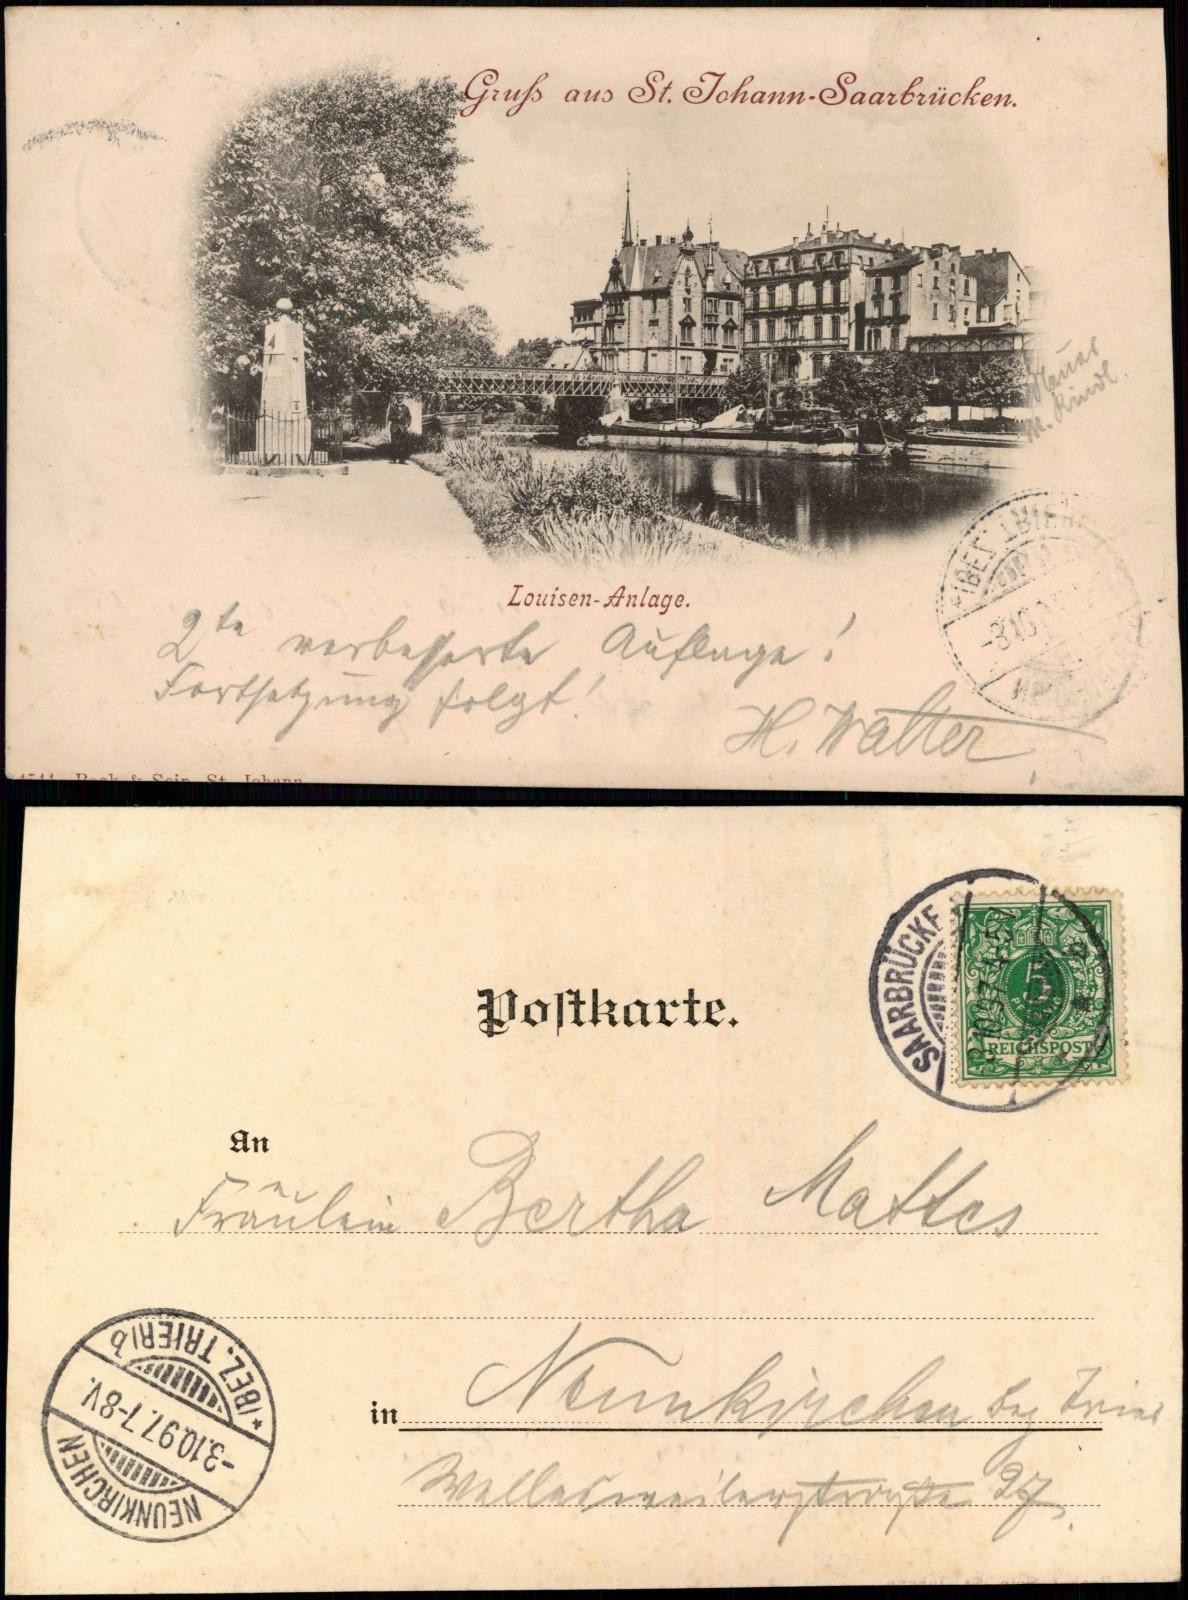 Gruß aus St. Johann-Saarbrücken.
Louisen-Anlage.
2te verbesserte Auflage!
Fortsetzung folgt!
H. Walter
(BEZ. TRIER)
-3.10.
Postkarte.
SAARBRÜCKE
10.97. 4-5
5
PFENNIG
REICHSPOST
An
Fräulein Bertha Mattes
in Neunkirchen Bez Trier
Wellesweilerstraße 27.
NEUNKIRCHEN
-3.10.97. 7-8V.
*(BEZ. TRIER) b